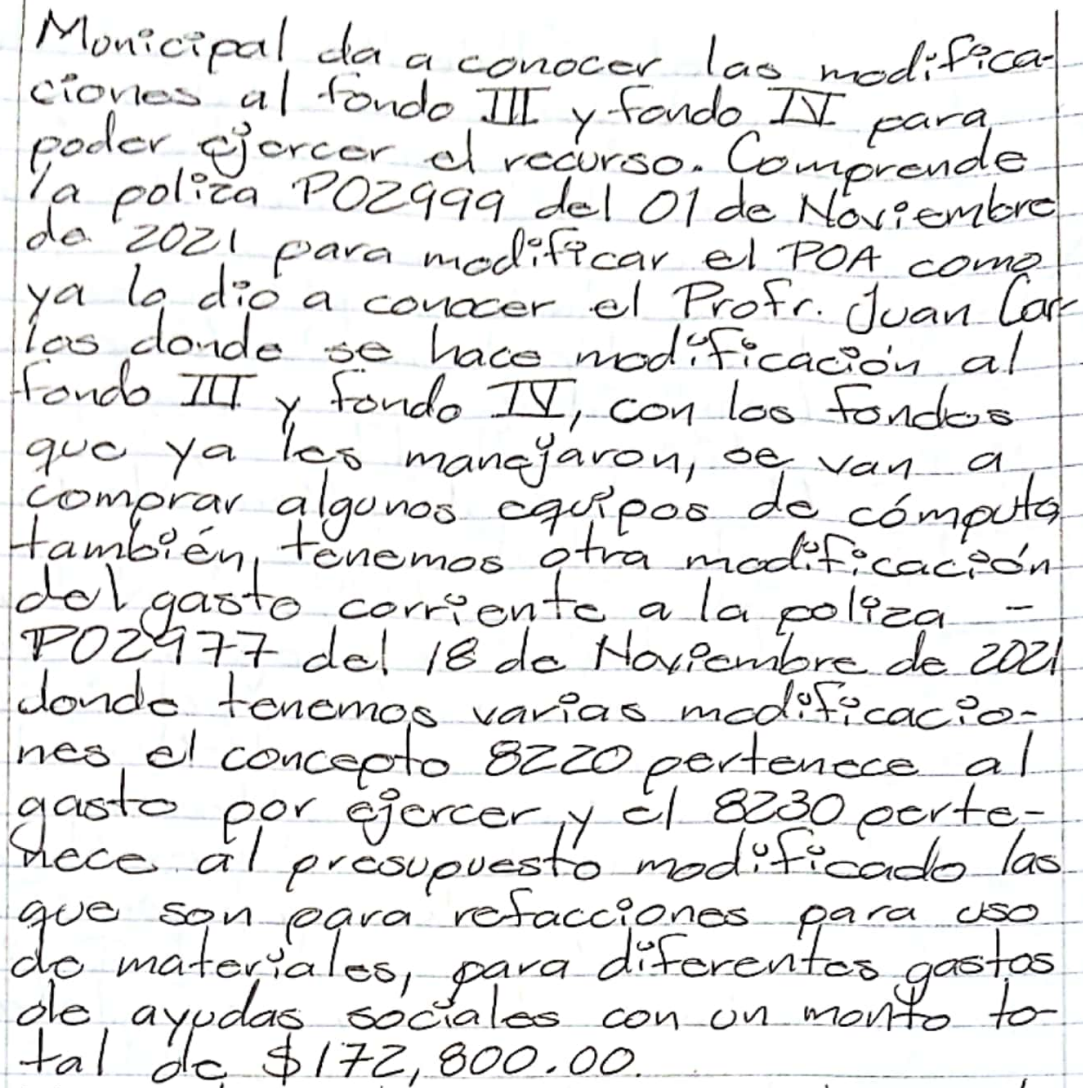 Municipal da a conocer las modifica-
ciones al fondo III y fondo IV para
poder ejercer el recurso. Comprende
la poliza P02999 del 01 de Noviembre
de 2021 para modificar el POA como
ya lo dio a conocer el Profr. Juan Car
los donde se hace modificación al
fondo III y fondo IV, con los fondos
que ya les manejaron, se van a
comprar algunos equipos de cómputo
también, tenemos otra modificación
del gasto corriente a la poliza -
P02977 del 18 de Noviembre de 2021
donde tenemos varias modificacio-
nes el concepto 8220 pertenece al
gasto por ejercer, y el 8230 perte-
nece al presupuesto modificado las
que son para refacciones para uso
de materiales, para diferentes gastos
de ayudas sociales con un monto to-
tal de $172,800.00.